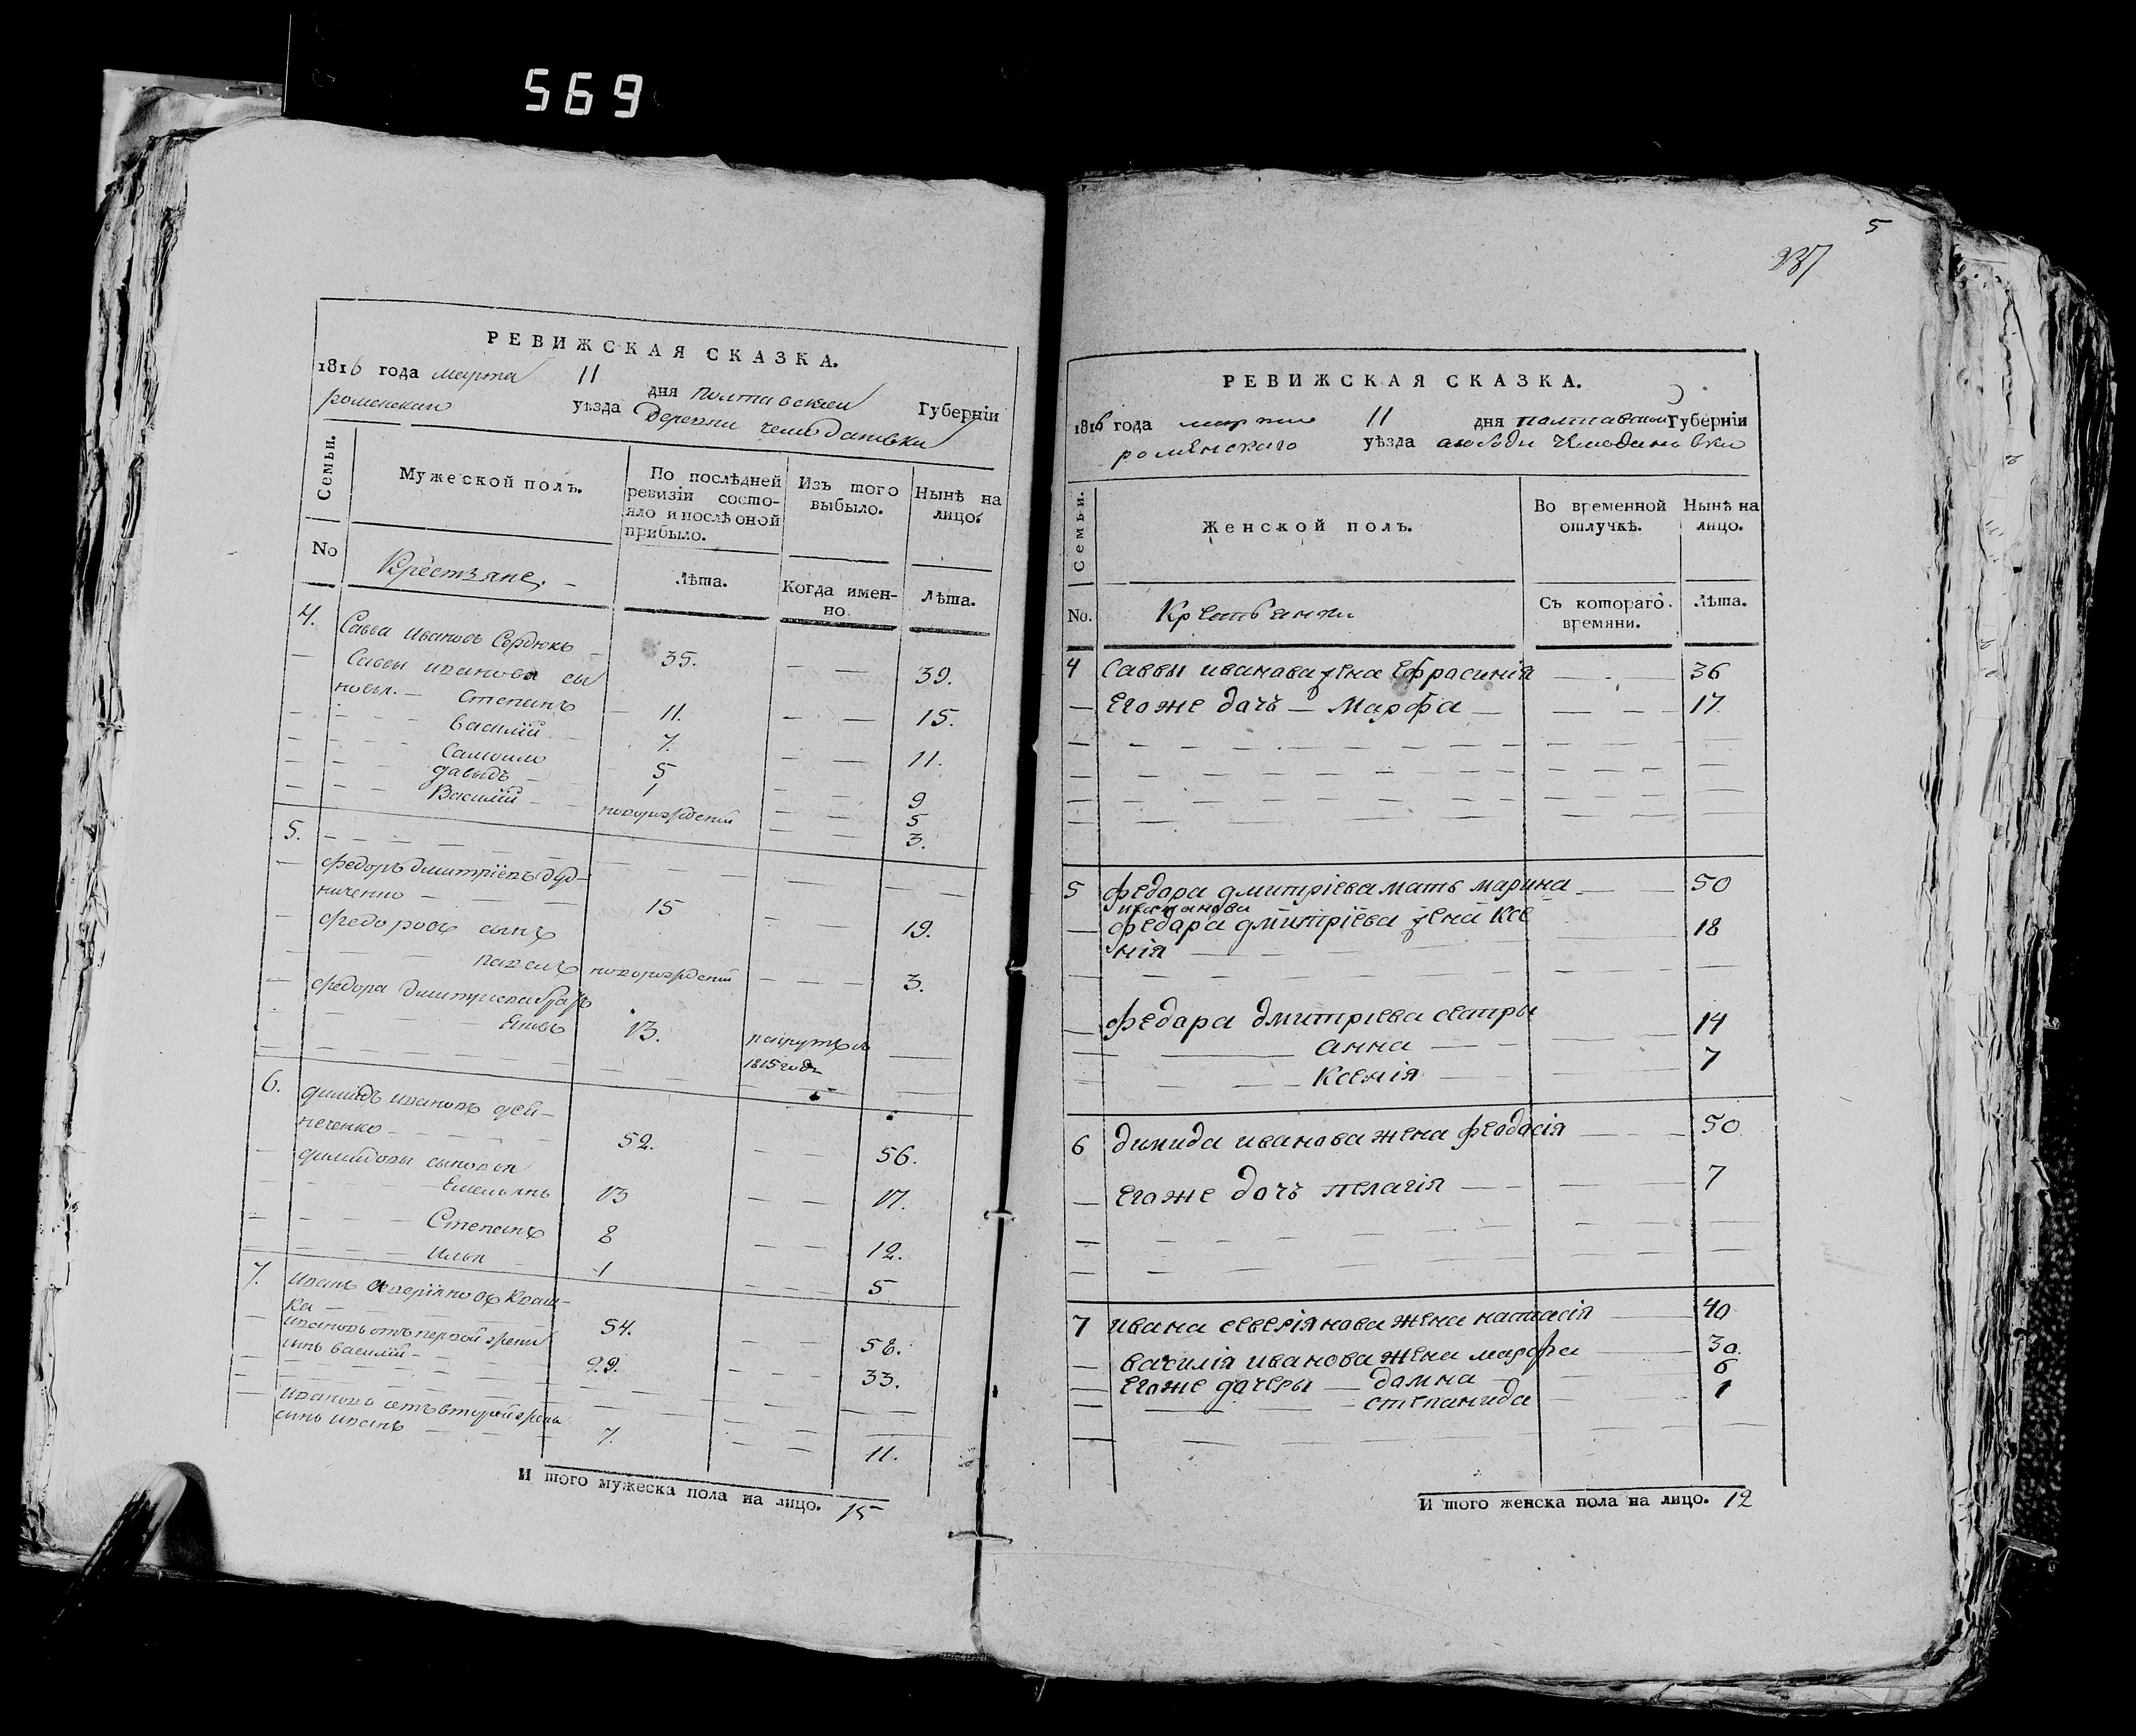 569
РЕВИЖСКАЯ СКАЗКА.
1816 года марта 11 дня полтавской Губерніи
роменскаго уѣзда Деревни чемоdановки
Семьи.
Мужеской полъ.
По послѣдней ревизіи состо-
яло и послѣ оной
прибыло.
Изъ того
выбыло.
Нынѣ на
лицо.
No
Крестьяне.
Лѣта.
Когда имен-
но.
Лѣта.
4. Савва Ивановъ Сердюкъ 35. 39.
Саввы иванова сы
новья. Степанъ 11. 15.
василій 7. 11.
Самойло 5 9
давыдъ 1 5
Василій новорожденый 3.
5.
федоръ дмитріевъ дуд-
ниченко 15 19.
федоровъ сынъ
павелъ новорожденый 3.
федора дмитриева братъ
Яковъ 13. рекрутъ въ
1815 годе
6. димидъ ивановъ дей-
неченко 52. 56.
димидовы сыновья
Емельянъ 13 17.
Степанъ 8 12.
илья 1 5
7. иванъ северіяновъ Кваш-
ка 54. 58.
ивановъ отъ первой жены
сынъ василій 29. 33.
иванова отъ второй жены
сынъ иванъ 7. 11.
И того мужеска пола на лицо. 15
5
237
РЕВИЖСКАЯ СКАЗКА.
1816 года марта 11 дня полтавской Губерніи
роменскаго уѣзда чемодановки
Семьи.
Женской полъ.
Во временной
отлучкѣ.
Нынѣ на
лицо.
No.
Крестьянки
Съ котораго
времяни.
Лѣта.
4 саввы иванава жена Ефрасинія 36
Егоже дочъ Марфа 17
5 федара дмитріева мать марина 50
федара дмитріева жена ксе
нія 18
федара дмитріева сестры
анна 14
Ксенія 7
6 димида иванова жена феодосія 50
Егоже дочъ пелагія 7
7 ивана северіянова жена настасія 40
василія иванова жена марфа 30.
Егоже дочеры домна 6
степанида 1
И того женска пола на лицо. 12